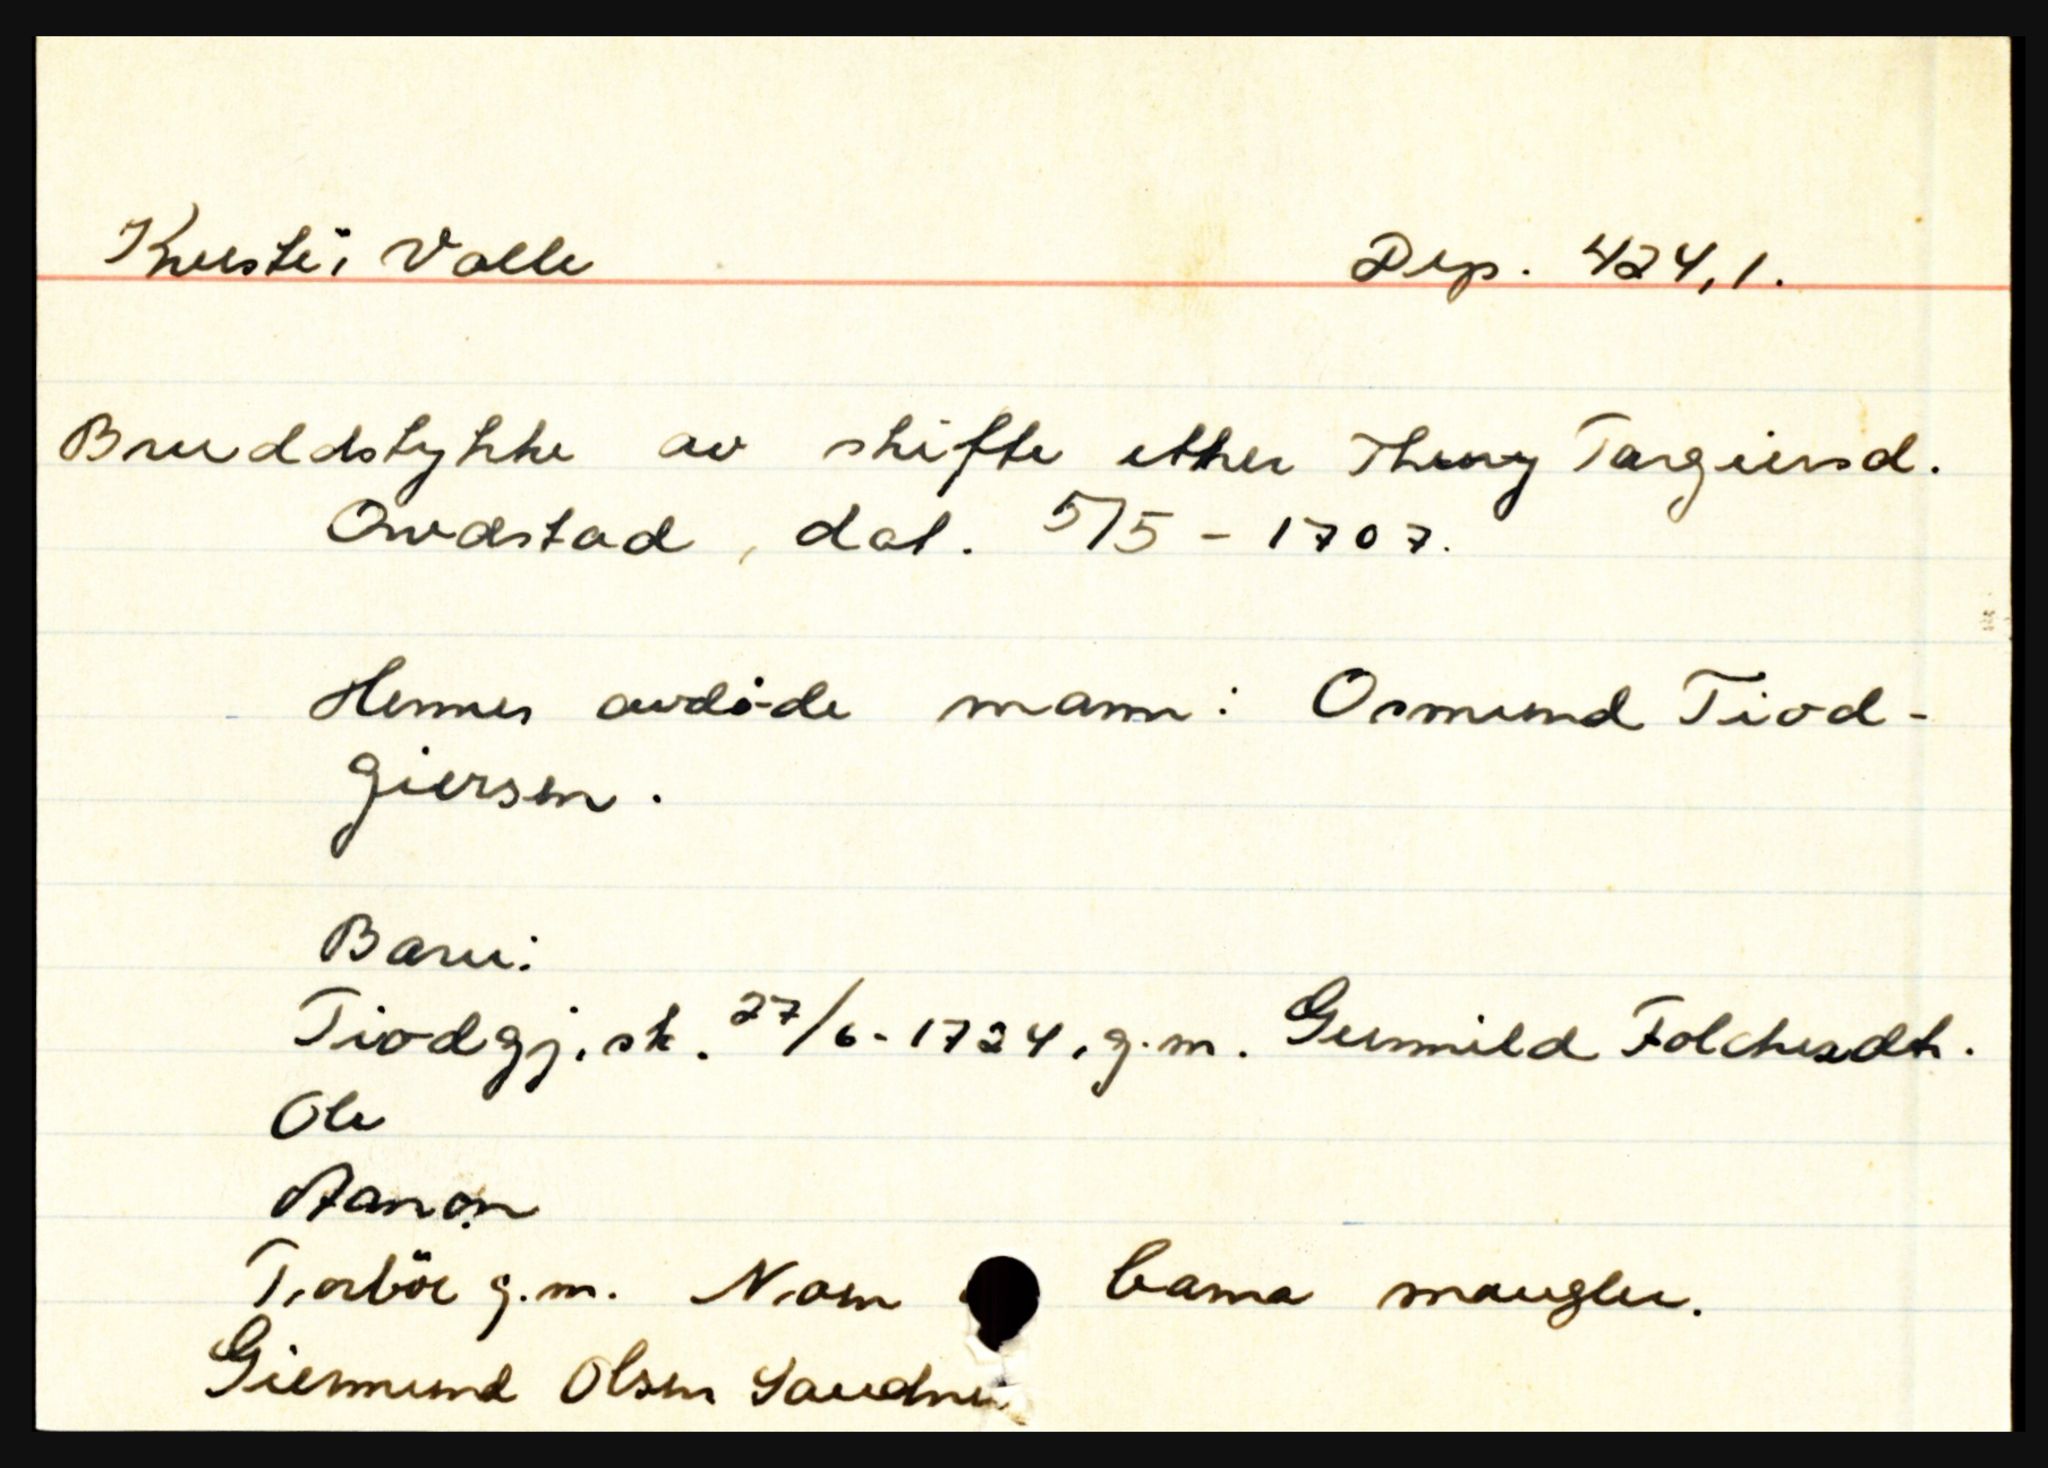 Krustöi Valle Dep. 424,1.
Bruddstykke av skifte etter Thorny Targiersd.
Owdstad, dat. 5/5 - 1707.
Hennes avdøde mann: Osmund Tiod-
giersen.
Barn:
Tiodgj. sk. 27/6 - 1724, g.m. Gunnild Folchesdtr.
Ole
Aanon
Torbör g.m. barna mangler.
Giermund Olsen